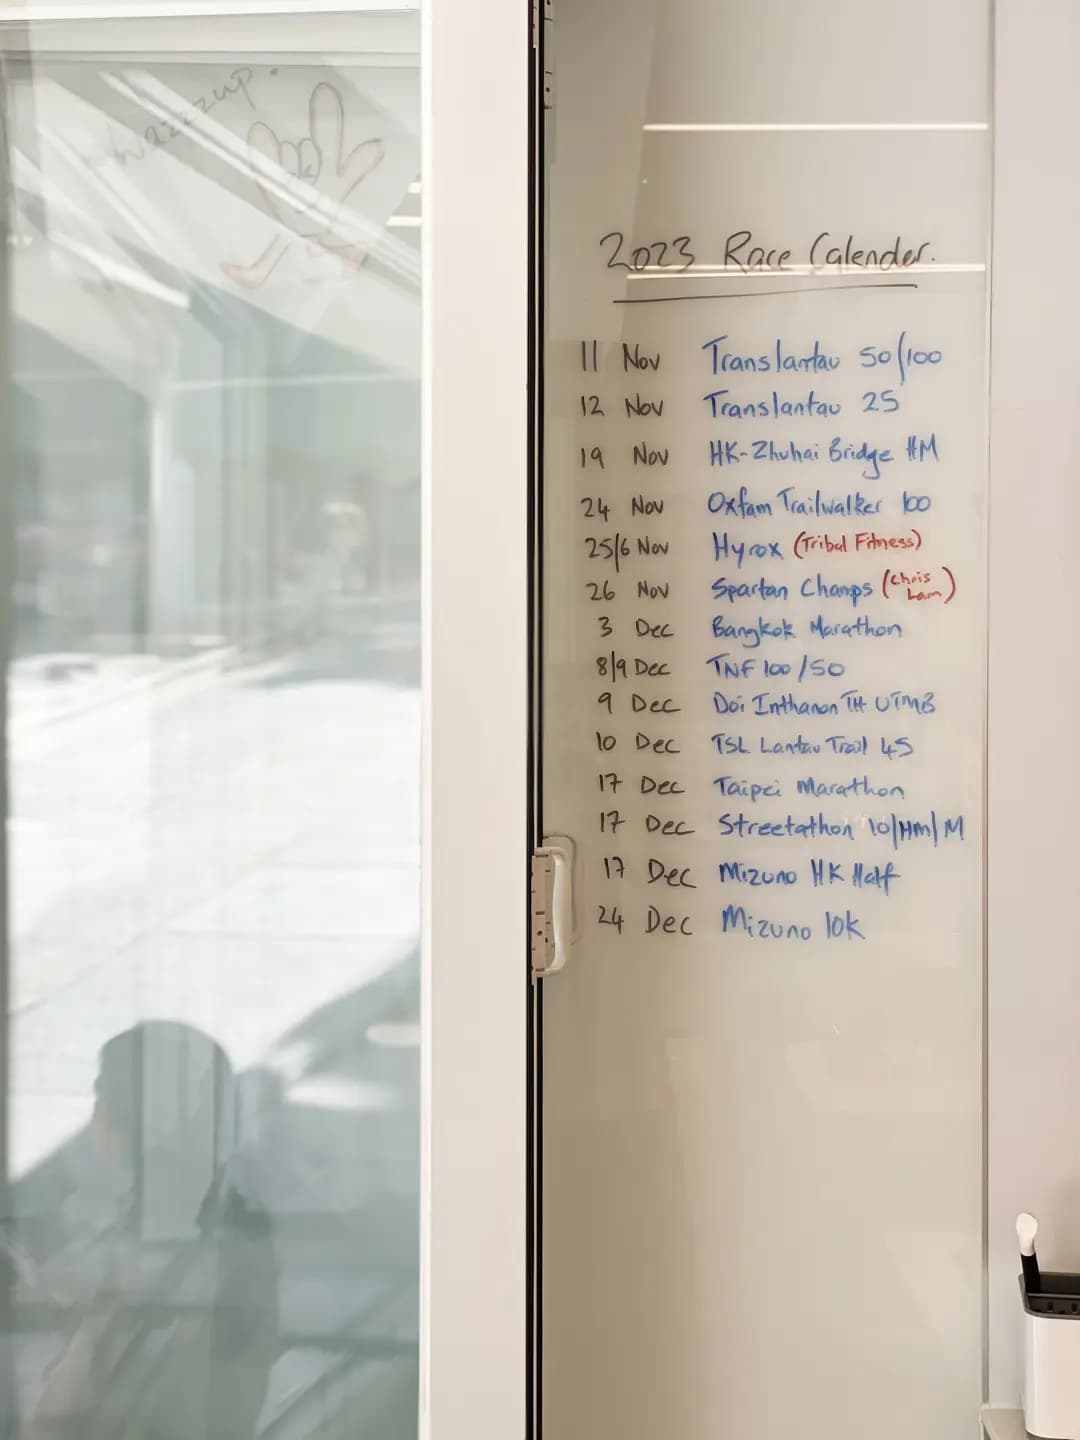 wazzzup.
2023 Race Calender.
11 Nov Translantau 50/100
12 Nov Translantau 25
19 Nov HK-Zhuhai Bridge HM
24 Nov Oxfam Trailwalker 100
25/6 Nov Hyrox (Tribal Fitness)
26 Nov Spartan Champs (Chris Lam)
3 Dec Bangkok Marathon
8/9 Dec TNF 100/50
9 Dec Doi Inthanon TH UTMB
10 Dec TSL Lantau Trail 45
17 Dec Taipei Marathon
17 Dec Streetathon 10/HM/M
17 Dec Mizuno HK Half
24 Dec Mizuno 10K